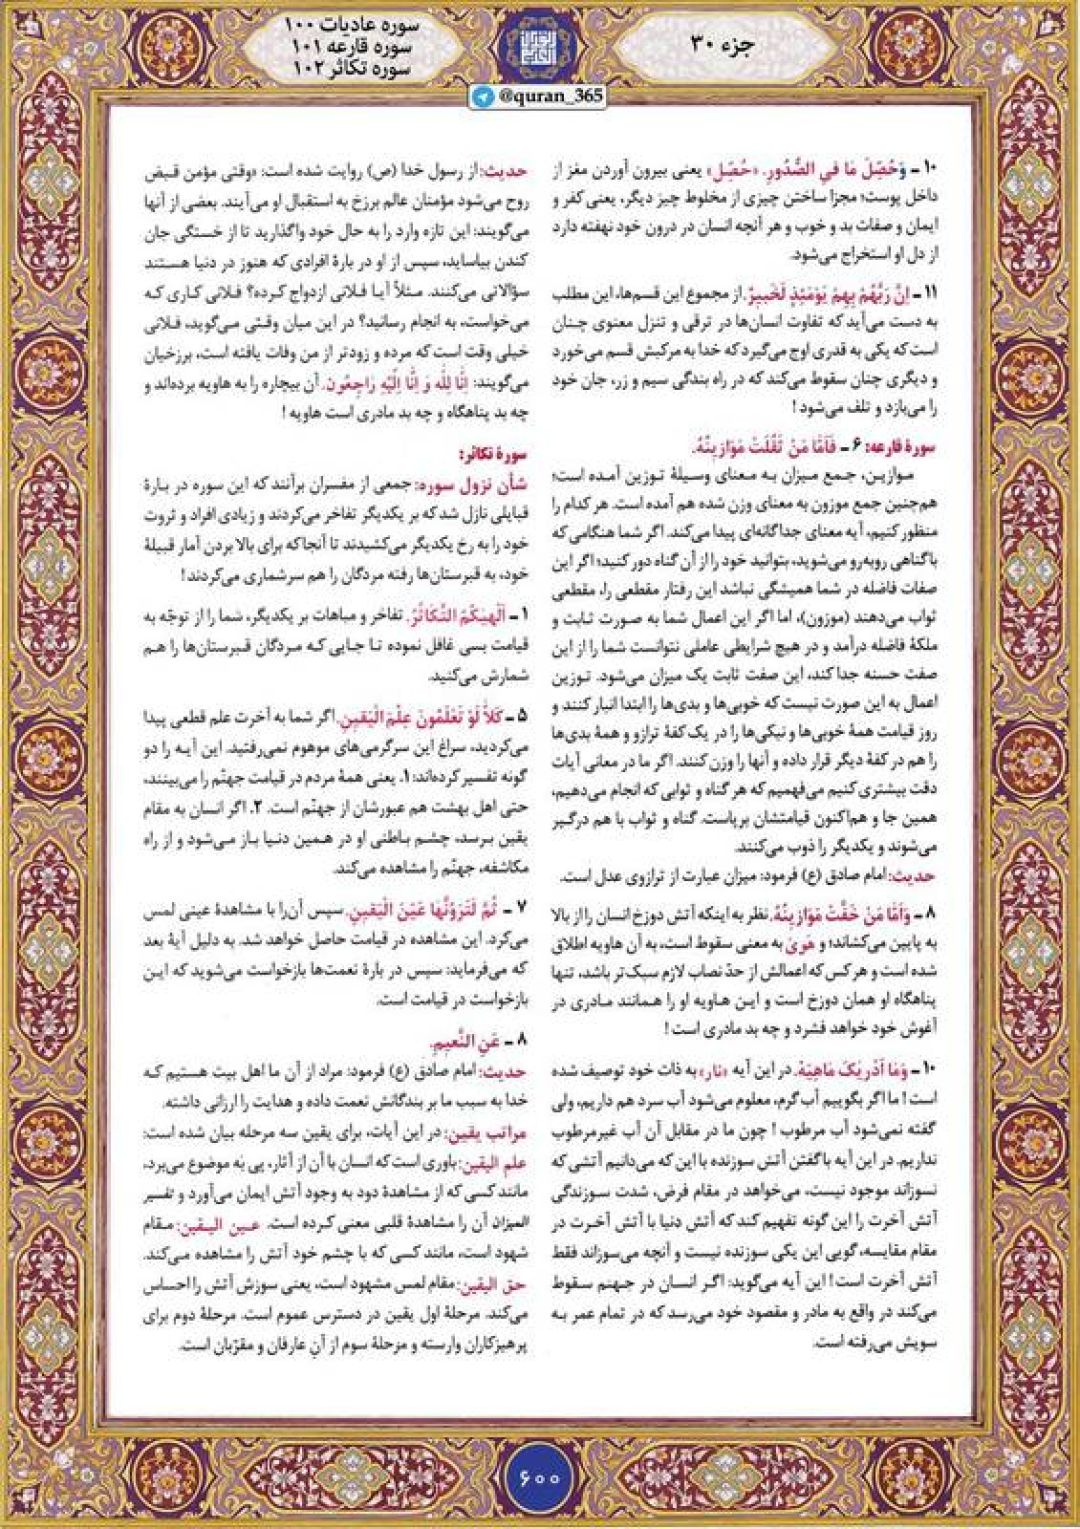 جزء ۳۰
سوره عادیات ۱۰۰
سوره قارعه ۱۰۱
سوره تکاثر ۱۰۲
@quran_365
۱۰ - وَحُصِّلَ مَا فِی الصُّدُورِ. «حُصِّلَ» یعنی بیرون آوردن مغز از
داخل پوست؛ مجزا ساختن چیزی از مخلوط چیز دیگر، یعنی کفر و
ایمان و صفات بد و خوب و هر آنچه انسان در درون خود نهفته دارد
از دل او استخراج می‌شود.
۱۱ - اِنَّ رَبَّهُمْ بِهِمْ یَوْمَئِذٍ لَخَبِیرٌ. از مجموع این قسم‌ها، این مطلب
به دست می‌آید که تفاوت انسان‌ها در ترقی و تنزل معنوی چنان
است که یکی به قدری اوج می‌گیرد که خدا به مرکبش قسم می‌خورد
و دیگری چنان سقوط می‌کند که در راه بندگی سیم و زر، جان خود
را می‌بازد و تلف می‌شود!
سورۀ قارعه: ۶ - فَاَمَّا مَنْ ثَقُلَتْ مَوَازِینُهُ.
موازین، جمع میزان به معنای وسیلۀ توزین آمده است؛
هم‌چنین جمع موزون به معنای وزن شده هم آمده است. هر کدام را
منظور کنیم، آیه معنای جداگانه‌ای پیدا می‌کند. اگر شما هنگامی که
با گناهی روبه‌رو می‌شوید، بتوانید خود را از آن گناه دور کنید؛ اگر این
صفات فاضله در شما همیشگی نباشد این رفتار مقطعی را، مقطعی
ثواب می‌دهند (موزون)، اما اگر این اعمال شما به صورت ثابت و
ملکۀ فاضله درآمد و در هیچ شرایطی عاملی نتوانست شما را از این
صفت حسنه جدا کند، این صفت ثابت یک میزان می‌شود. توزین
اعمال به این صورت نیست که خوبی‌ها و بدی‌ها را ابتدا انبار کنند و
روز قیامت همۀ خوبی‌ها و نیکی‌ها را در یک کفۀ ترازو و همۀ بدی‌ها
را هم در کفۀ دیگر قرار داده و آنها را وزن کنند. اگر ما در معانی آیات
دقت بیشتری کنیم می‌فهمیم که هر گناه و ثوابی که انجام می‌دهیم،
همین جا و هم‌اکنون قیامتشان برپاست. گناه و ثواب با هم درگیر
می‌شوند و یکدیگر را ذوب می‌کنند.
حدیث: امام صادق (ع) فرمود: میزان عبارت از ترازوی عدل است.
۸ - وَاَمَّا مَنْ خَفَّتْ مَوَازِینُهُ. نظر به اینکه آتش دوزخ انسان را از بالا
به پایین می‌کشاند؛ و هَویٰ به معنی سقوط است، به آن هاویه اطلاق
شده است و هرکس که اعمالش از حدّ نصاب لازم سبک‌تر باشد، تنها
پناهگاه او همان دوزخ است و این هاویه او را همانند مادری در
آغوش خود خواهد فشرد و چه بد مادری است!
۱۰ - وَمَا اَدْرٰیکَ مَاهِیَهْ. در این آیه «نار» به ذات خود توصیف شده
است! ما اگر بگوییم آب گرم، معلوم می‌شود آب سرد هم داریم، ولی
گفته نمی‌شود آب مرطوب! چون ما در مقابل آن آب غیرمرطوب
نداریم. در این آیه با گفتن آتش سوزنده با این که می‌دانیم آتشی که
نسوزاند موجود نیست، می‌خواهد در مقام فرض، شدت سوزندگی
آتش آخرت را این گونه تفهیم کند که آتش دنیا با آتش آخرت در
مقام مقایسه، گویی این یکی سوزنده نیست و آنچه می‌سوزاند فقط
آتش آخرت است! این آیه می‌گوید: اگر انسان در جهنم سقوط
می‌کند در واقع به مادر و مقصود خود می‌رسد که در تمام عمر به
سویش می‌رفته است.
حدیث: از رسول خدا (ص) روایت شده است: «وقتی مؤمن قبض
روح می‌شود مؤمنان عالم برزخ به استقبال او می‌آیند. بعضی از آنها
می‌گویند: این تازه وارد را به حال خود واگذارید تا از خستگی جان
کندن بیاساید، سپس از او در بارۀ افرادی که هنوز در دنیا هستند
سؤالاتی می‌کنند. مثلاً آیا فلانی ازدواج کرده؟ فلانی کاری که
می‌خواست، به انجام رسانید؟ در این میان وقتی می‌گوید، فلانی
خیلی وقت است که مرده و زودتر از من وفات یافته است، برزخیان
می‌گویند: اِنَّا لِلّٰه وَ اِنَّا اِلَیْهِ رَاجِعُون. آن بیچاره را به هاویه برده‌اند و
چه بد پناهگاه و چه بد مادری است هاویه!
سورۀ تکاثر:
شأن نزول سوره: جمعی از مفسران برآنند که این سوره در بارۀ
قبایلی نازل شد که بر یکدیگر تفاخر می‌کردند و زیادی افراد و ثروت
خود را به رخ یکدیگر می‌کشیدند تا آنجا که برای بالا بردن آمار قبیلۀ
خود، به قبرستان‌ها رفته مردگان را هم سرشماری می‌کردند!
۱ - اَلْهٰیکُمُ التَّکَاثُرُ. تفاخر و مباهات بر یکدیگر، شما را از توجّه به
قیامت بسی غافل نموده تا جایی که مردگان قبرستان‌ها را هم
شمارش می‌کنید.
۵ - کَلاَّ لَوْ تَعْلَمُونَ عِلْمَ الْیَقِینِ. اگر شما به آخرت علم قطعی پیدا
می‌کردید، سراغ این سرگرمی‌های موهوم نمی‌رفتید. این آیه را دو
گونه تفسیر کرده‌اند: ۱. یعنی همۀ مردم در قیامت جهنّم را می‌بینند،
حتی اهل بهشت هم عبورشان از جهنّم است. ۲. اگر انسان به مقام
یقین برسد، چشم باطنی او در همین دنیا باز می‌شود و از راه
مکاشفه، جهنّم را مشاهده می‌کند.
۷ - ثُمَّ لَتَرَوُنَّهَا عَیْنَ الْیَقِینِ. سپس آن را با مشاهدۀ عینی لمس
می‌کرد. این مشاهده در قیامت حاصل خواهد شد. به دلیل آیۀ بعد
که می‌فرماید: سپس در بارۀ نعمت‌ها بازخواست می‌شوید که این
بازخواست در قیامت است.
۸ - عَنِ النَّعِیمِ.
حدیث: امام صادق (ع) فرمود: مراد از آن ما اهل بیت هستیم که
خدا به سبب ما بر بندگانش نعمت داده و هدایت را ارزانی داشته.
مراتب یقین: در این آیات، برای یقین سه مرحله بیان شده است:
علم الیقین: باوری است که انسان با آن از آثار، پی به موضوع می‌برد،
مانند کسی که از مشاهدۀ دود به وجود آتش ایمان می‌آورد و تفسیر
المیزان آن را مشاهدۀ قلبی معنی کرده است. عین الیقین: مقام
شهود است، مانند کسی که با چشم خود آتش را مشاهده می‌کند.
حق الیقین: مقام لمس مشهود است، یعنی سوزش آتش را احساس
می‌کند. مرحلۀ اول یقین در دسترس عموم است. مرحلۀ دوم برای
پرهیزکاران وارسته و مرحلۀ سوم از آنِ عارفان و مقرّبان است.
۶۰۰